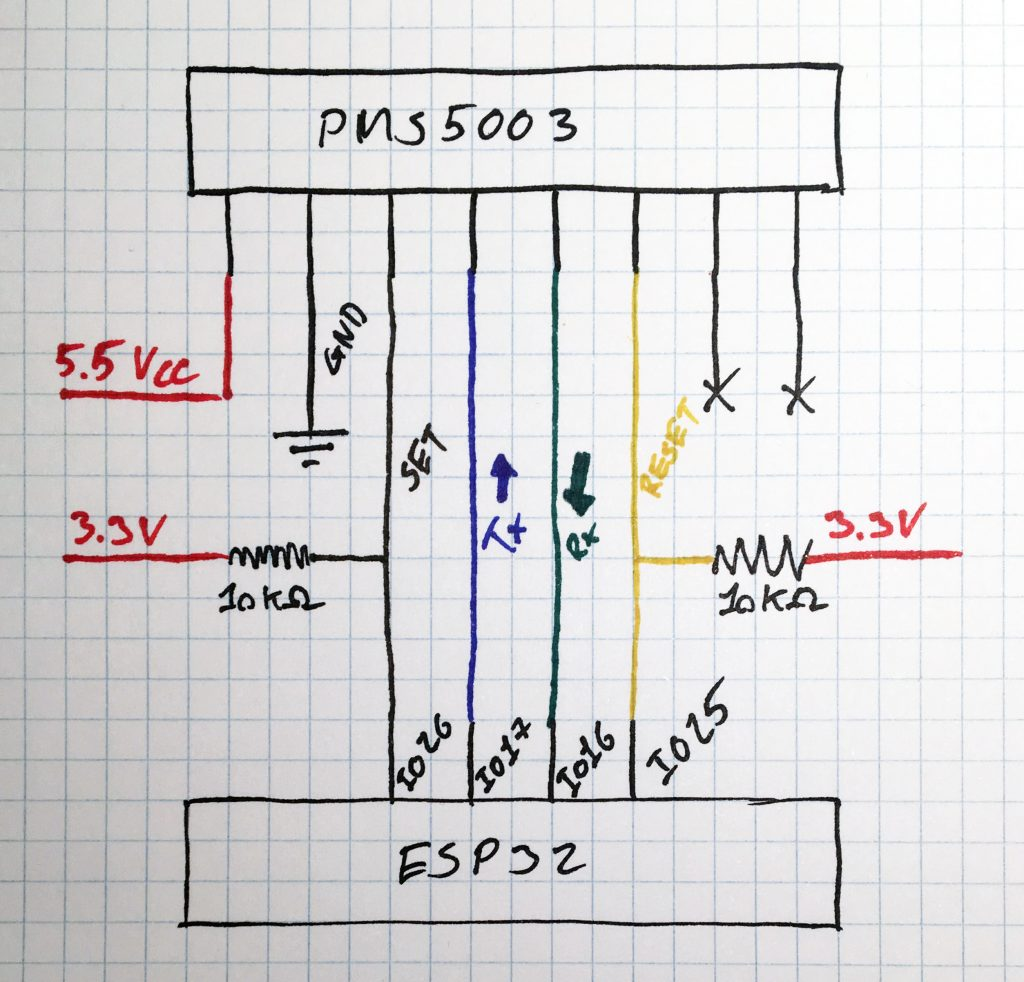 PMS5003
5.5 Vcc
GND
SET
Tx
Rx
RESET
3.3V
10KΩ
3.3V
10KΩ
IO26
IO17
IO16
IO25
ESP32